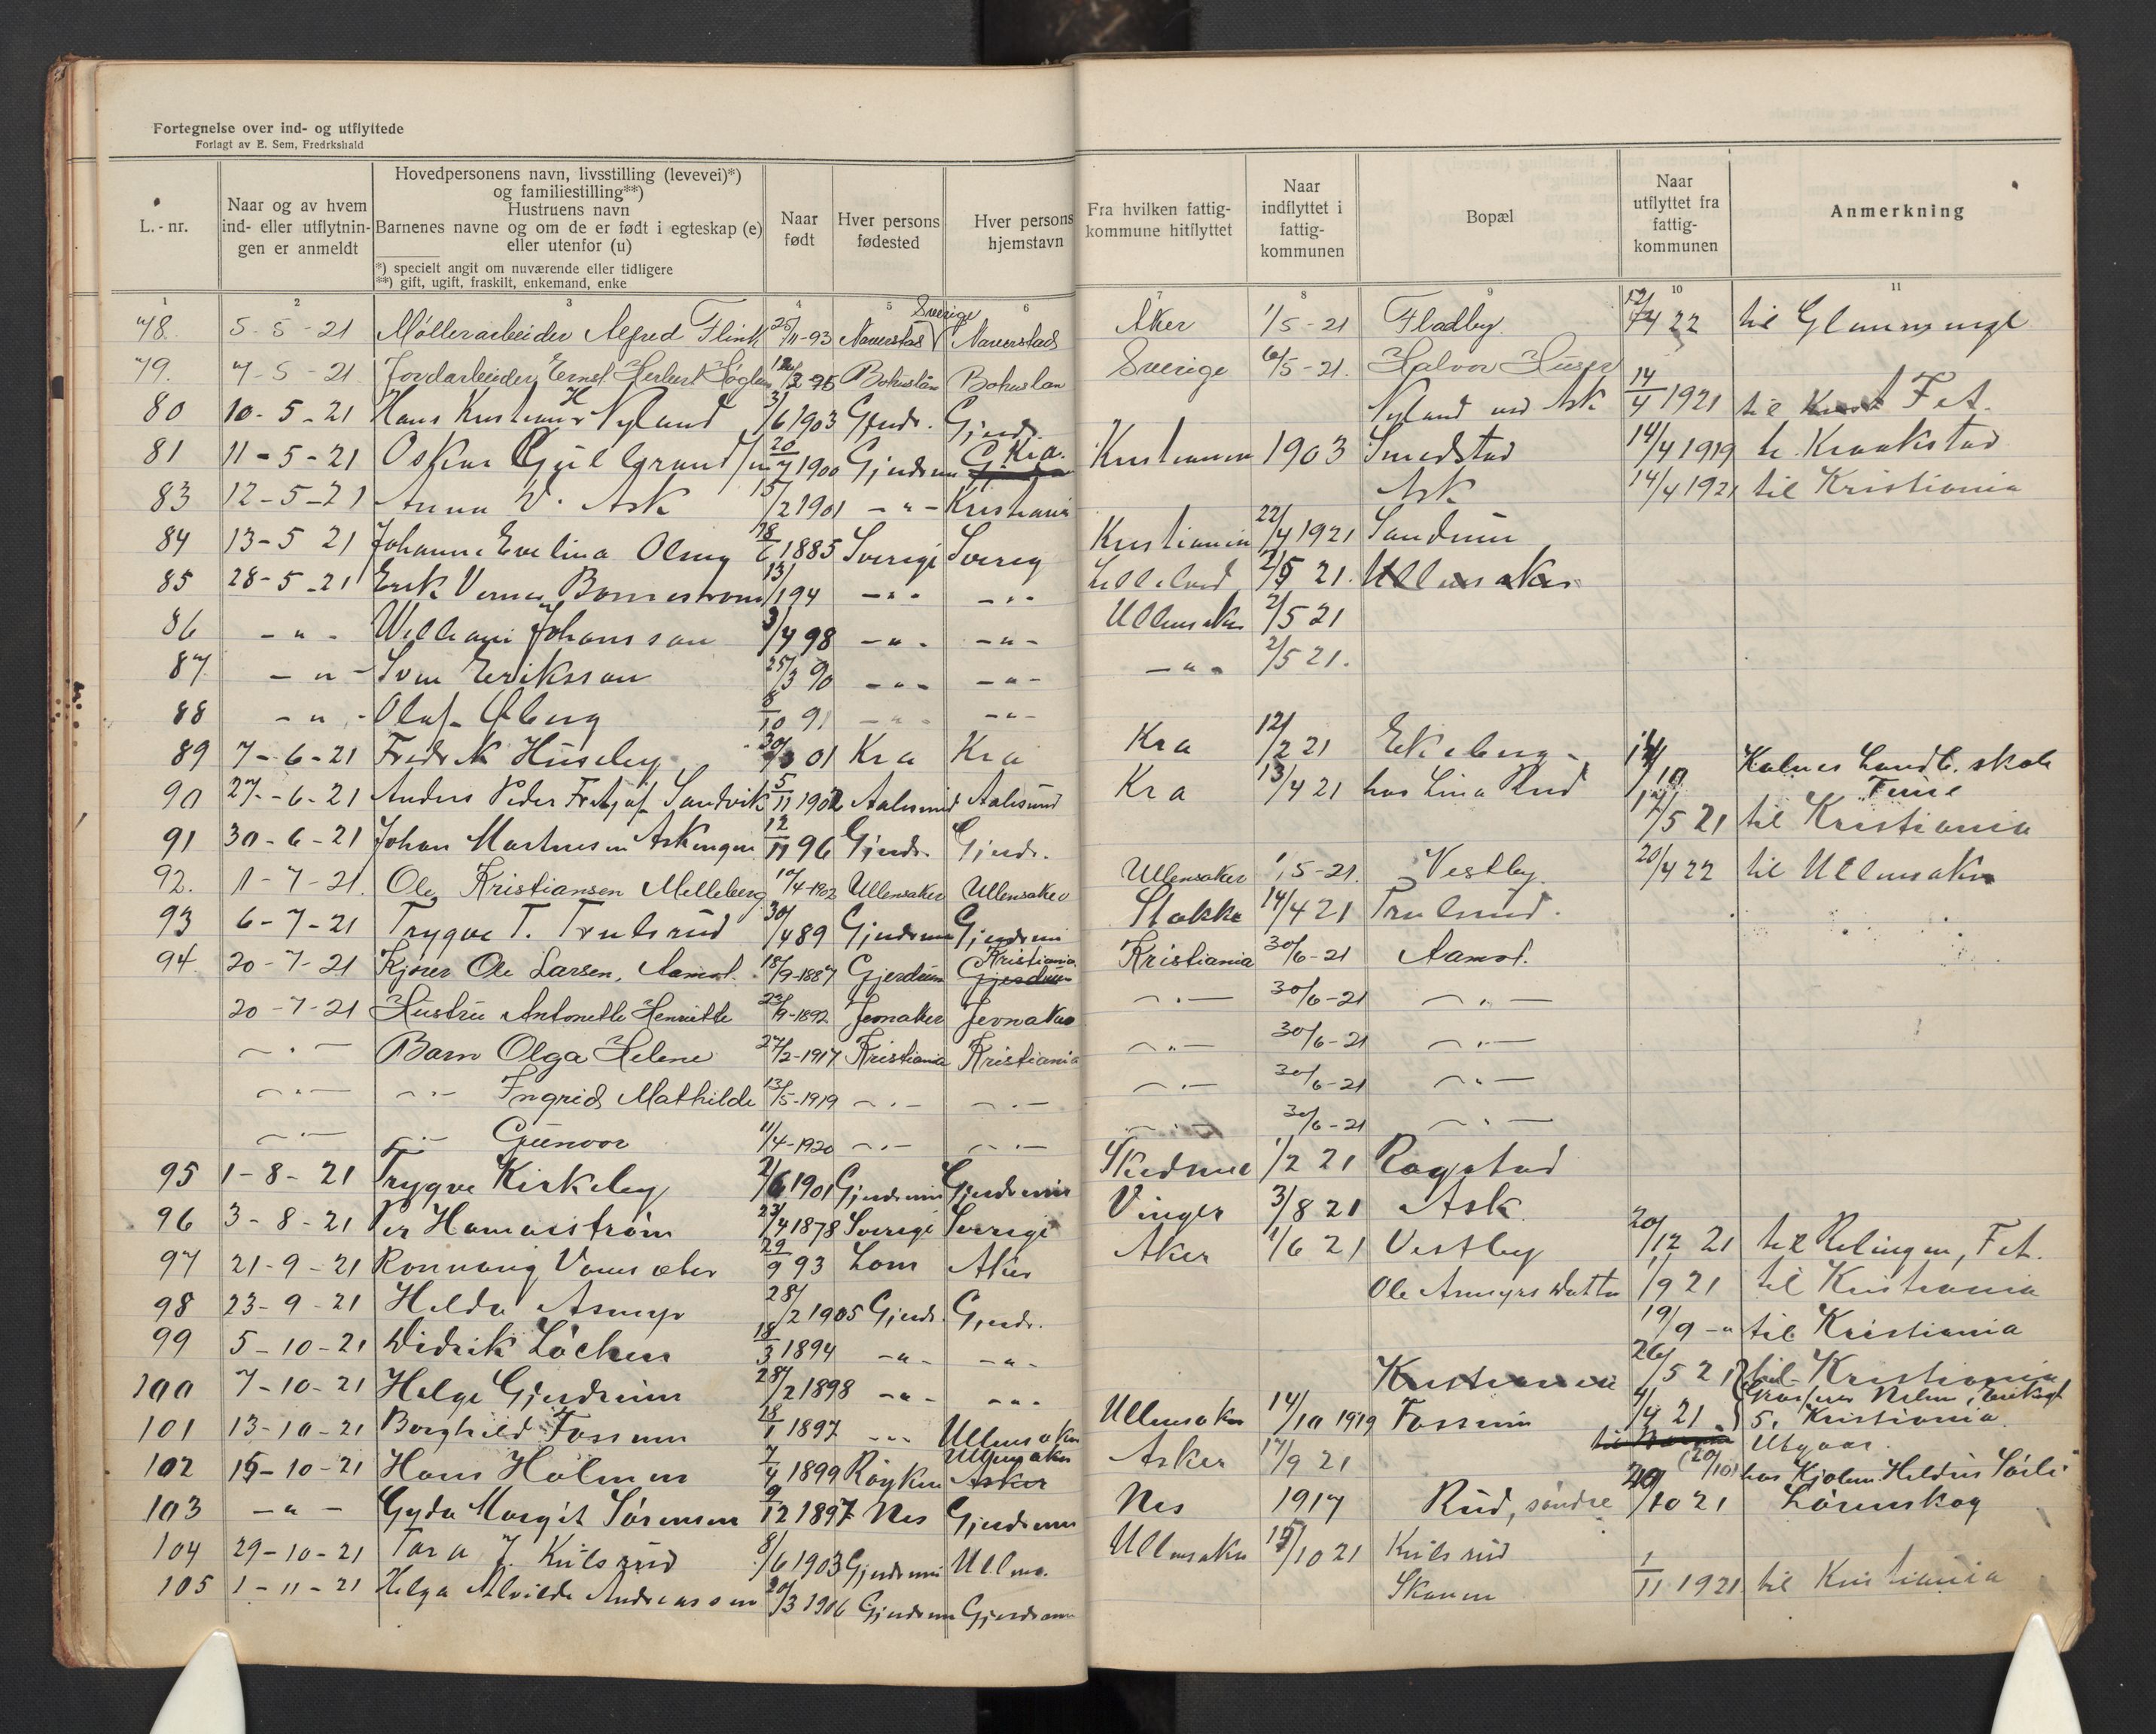 Fortegnelse over ind- og utflyttede
Forlagt av E. Sem, Fredrkshald
L.-nr. | Naar og av hvem ind- eller utflytningen er anmeldt | Hovedpersonens navn, livsstilling (levevei)*) og familiestilling**) Hustruens navn Barnenes navne og om de er født i egteskap (e) eller utenfor (u) *) specielt angit om nuværende eller tidligere **) gift, ugift, fraskilt, enkemand, enke | Naar født | Hver persons fødested | Hver persons hjemstavn | Fra hvilken fattigkommune hitflyttet | Naar indflyttet i fattigkommunen | Bopæl | Naar utflyttet fra fattigkommunen | Anmerkning
1 2 3 4 5 6 7 8 9 10 11
78. 5-5-21 Møllerarbeider Alfred Flink 25/11-93 Naverstad Sverige Naverstad Aker 1/5-21 Fladby. 22 til
79. 7-5-21 Jordarbeider Ernst Herbert Bohuslän Bohuslan Sverige 6/5-21. Halvor Huser
80 10-5-21 Hans Kristian H Nyland 3/6 1903 Gjndr. Gjndr. Nyland ved Ask 14/4 1921 til Fet.
81 11-5-21 Oskar 20/7 1900 Gjndrum Kra. Kristiania 1903 Smedstad 14/4 1919 Kraakstad
83 12-5-21 Anna V. Ask 15/2 1901 -"- Kristiania Ask 14/4 1921 til Kristiania
84 13-5 21 Johanne Evelina 18/6 1885 Sverige Sverig Kristiania 22/4 1921 Sandum
85 28-5-21 Erik Verner 13/1 94 -"- -"- 2/5 21. Ullensaker
86 -"- William Johansson 3/4 98 -"- -"- Ullensaker 2/5 21
87 -"- Sven Eriksson 25/3 90 -"- -"- -"- 2/5 21.
88 -"- Olaf Øberg 8/10 91 -"- -"-
89 7-6-21 Fredrik Huseby 01 Kra Kra Kra 12/2 21 Ekeberg Kalnes Landb. skole Tune
90 27-6-21 Anders Peder Fritjof Sandvik 5/11 1902 Aalesund Aalesund Kra 13/4 21 hos Lina Rud
91 30-6-21 Johan Martinsen Askengen 12/11 96 Gjndr. Gjndr. 17/5 21 til Kristiania
92. 1-7-21. Ole Kristiansen Melleberg 10/4-1902 Ullensaker Ullensaker Ullensaker 1/5-21. Vestby. 20/4 22 til Ullensaker
93 6-7-21 Trygve T. Trulsrud 30/4 89 Gjndrum Gjndrum Stokke 14/4 21 Trulsrud.
94. 20-7-21 Kjører Ole Larsen, Aamot. 18/9-1887 Gjerdrum Kristiania Gjerdrum Kristiania 30/6-21 Aamot.
20-7-21 Hustru Antonette Henriette 23/9-1892 Jevnaker Jevnaker -"- 30/6-21 -"-
-"- Barn Olga Helene 27/2-1917 Kristiania Kristiania -"- 30/6-21 -"-
-"- -"- Ingrid Mathilde 13/5-1919 -"- -"- -"- 30/6-21 -"-
-"- -"- Gunvor 11/4-1920 -"- -"- -"- 30/6-21 -"-
95 1-8-21 Trygve Kirkeby 2/6 1901 Gjndrum Gjndrum Skedsmo 1/2 21 Rogstad
96 3-8-21 Per Hamarström 23/4 1878 Sverige Sverige Vinger 3/8 21 Ask
97 21-9-21 Ronnaug 29/9 93 Lom Aker Aker 1/6 21 Vestby 20/12 21 til Relingen, Fet.
98 23-9-21 Hilda Asmyr 28/2 1905 Gjndr. Gjndr. Ole Asmyrs datter 1/9 21 til Kristiania
99 5-10-21 Didrik Løchen 18/3 1894 -"- -"- 19/9 -"- til Kristiania
100 7-10-21 Helge Gjndrum 28/2 1898 -"- -"- Kristiania 26/5 21 til Kristiania
101 13-10-21 Borghild Fossum 18/1 1897 -"- Ullensaker Ullensaker 14/10 1919 Fossum 4/4 21 5, Kristiania
102 15-10-21 Hans Holmen 7/4 1899 Røyken Ullensaker Asker Asker 17/9 21 Utgaar.
103 -"- Gyda Margit Sørensen 9/12 1897 Nes Gjndrum Nes 1917 Rud, søndre 20/10 21 (20/10) hos Lørenskog
104 29-10-21 Tora J. Kulsrud 8/6 1903 Gjndrum Ullens. Ullensaker 15/10 21 Kulsrud
105 1-11-21 Helga Alvilde Andreassen 20/3 1906 Gjndrum Gjerdrum Skauen 1/11 1921 til Kristiania